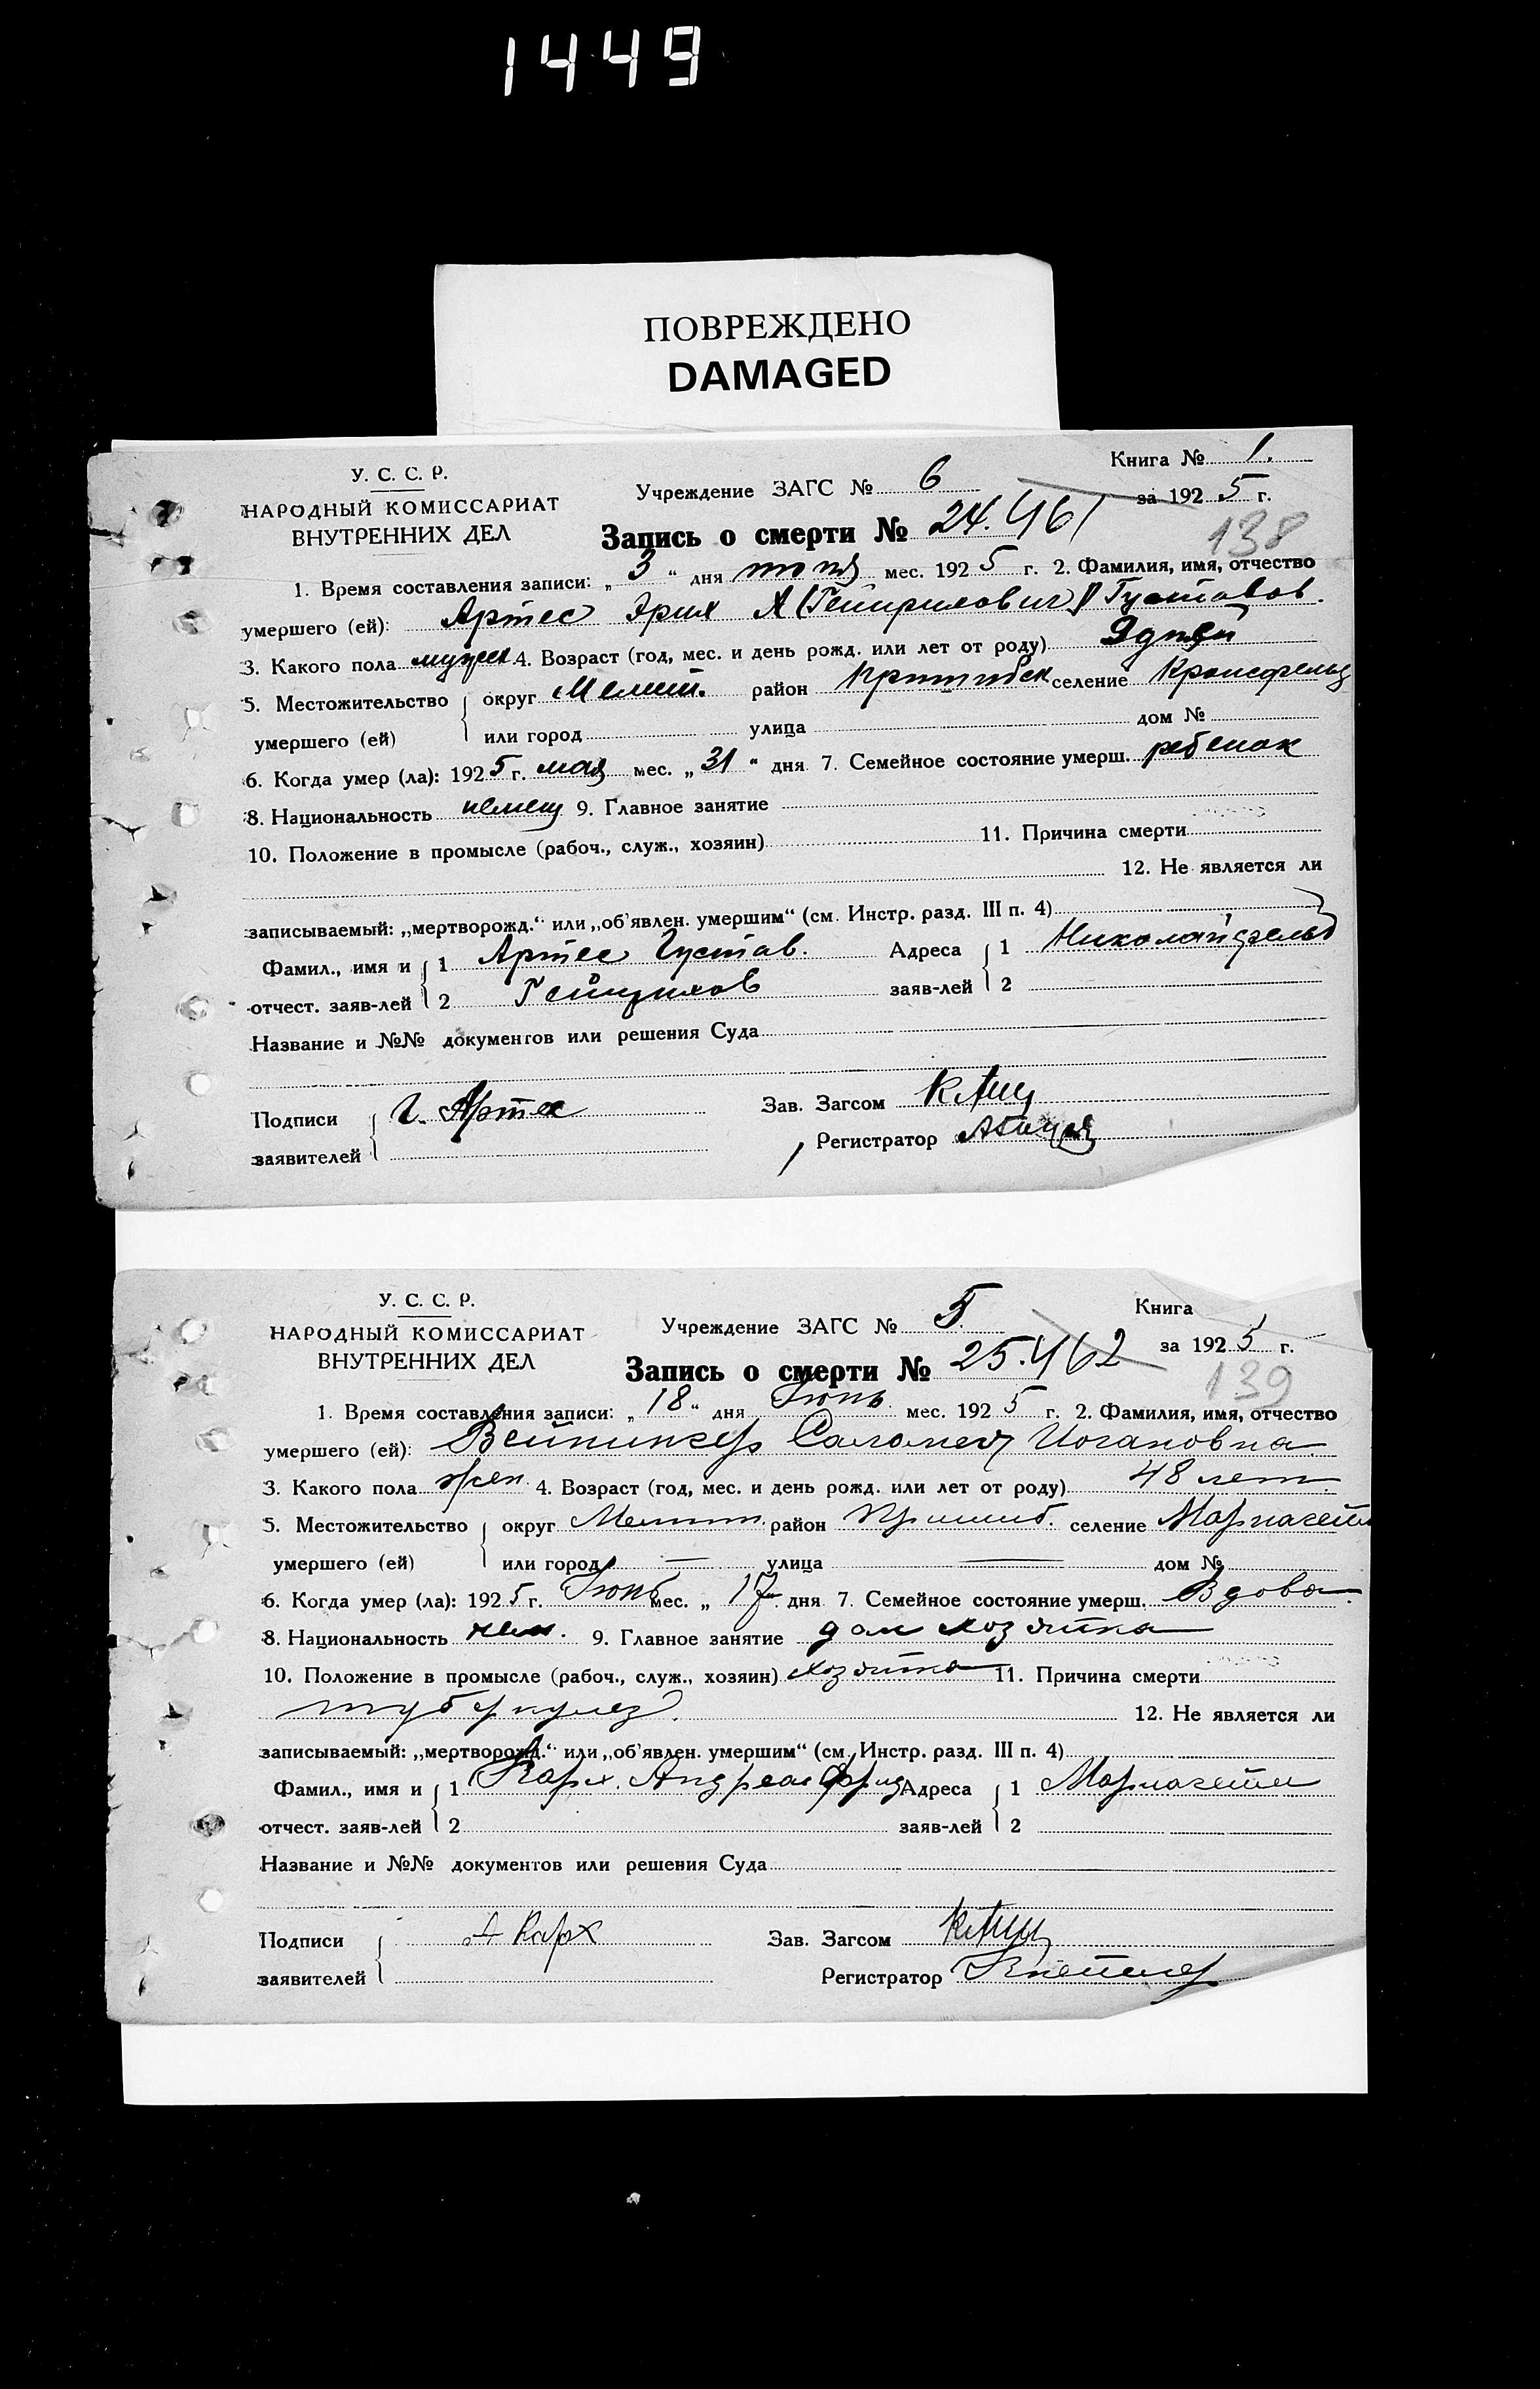 1449
ПОВРЕЖДЕНО
DAMAGED
У. С. С. Р.
НАРОДНЫЙ КОМИССАРИАТ
ВНУТРЕННИХ ДЕЛ
Книга № 1.
Учреждение ЗАГС № 6
за 1925 г.
Запись о смерти № 24. 461
138
1. Время составления записи: „3“ дня июня мес. 1925 г. 2. Фамилия, имя, отчество
умершего (ей): Артес Эрих А (Гейнрихович) Густавов.
3. Какого пола мужск 4. Возраст (год, мес. и день рожд. или лет от роду)
5. Местожительство округ Мелит. район Пришибск селение Кронсфельд
умершего (ей) или город улица дом №
6. Когда умер (ла): 1925 г. мая мес. „31“ дня 7. Семейное состояние умерш. ребенок
8. Национальность немец 9. Главное занятие
10. Положение в промысле (рабоч., служ., хозяин) 11. Причина смерти
12. Не является ли
записываемый: „мертворожд.“ или „об'явлен. умершим“ (см. Инстр. разд. III п. 4)
Фамил., имя и 1 Артес Густав. Адреса 1 Николайфельд
отчест. заяв-лей 2 Гейнрихов заяв-лей 2
Название и №№ документов или решения Суда
Подписи Г. Артес Зав. Загсом
заявителей Регистратор
У. С. С. Р.
НАРОДНЫЙ КОМИССАРИАТ
ВНУТРЕННИХ ДЕЛ
Книга
Учреждение ЗАГС № 5.
за 1925 г.
Запись о смерти № 25. 462
139
1. Время составления записи: „18“ дня Июнь мес. 1925 г. 2. Фамилия, имя, отчество
умершего (ей): Вейнингер Саломея Иогановна
3. Какого пола жен. 4. Возраст (год, мес. и день рожд. или лет от роду) 48 лет.
5. Местожительство округ Мелит. район Пришиб. селение
умершего (ей) или город — улица — дом №
6. Когда умер (ла): 1925 г. Июнь мес. „17“ дня 7. Семейное состояние умерш. Вдова.
8. Национальность нем. 9. Главное занятие дом хозяйка
10. Положение в промысле (рабоч., служ., хозяин) хозяйка 11. Причина смерти
туберкулез. 12. Не является ли
записываемый: „мертворожд.“ или „об'явлен. умершим“ (см. Инстр. разд. III п. 4)
Фамил., имя и 1 Карх. Андреас Фрид Адреса 1
отчест. заяв-лей 2 заяв-лей 2
Название и №№ документов или решения Суда
Подписи А Карх Зав. Загсом
заявителей Регистратор